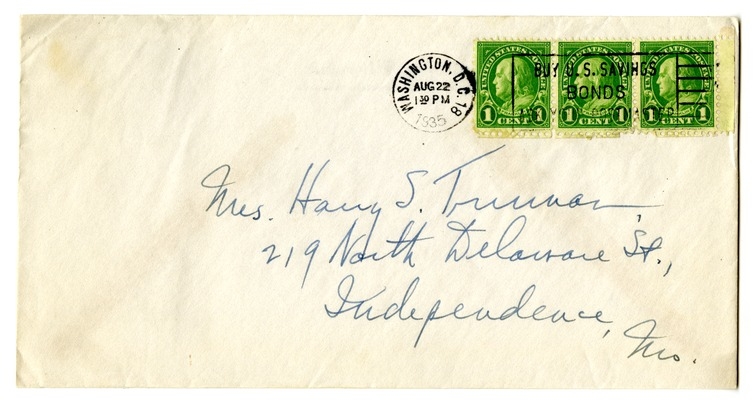 WASHINGTON, D.C. 18
AUG 22
1 30 PM
1935
BUY U.S. SAVINGS
BONDS
UNITED STATES POSTAGE
1 CENT 1
UNITED STATES POSTAGE
1 CENT 1
UNITED STATES POSTAGE
1 CENT 1
Mrs. Harry S. Truman,
219 North Delaware St.,
Independence,
Mo.